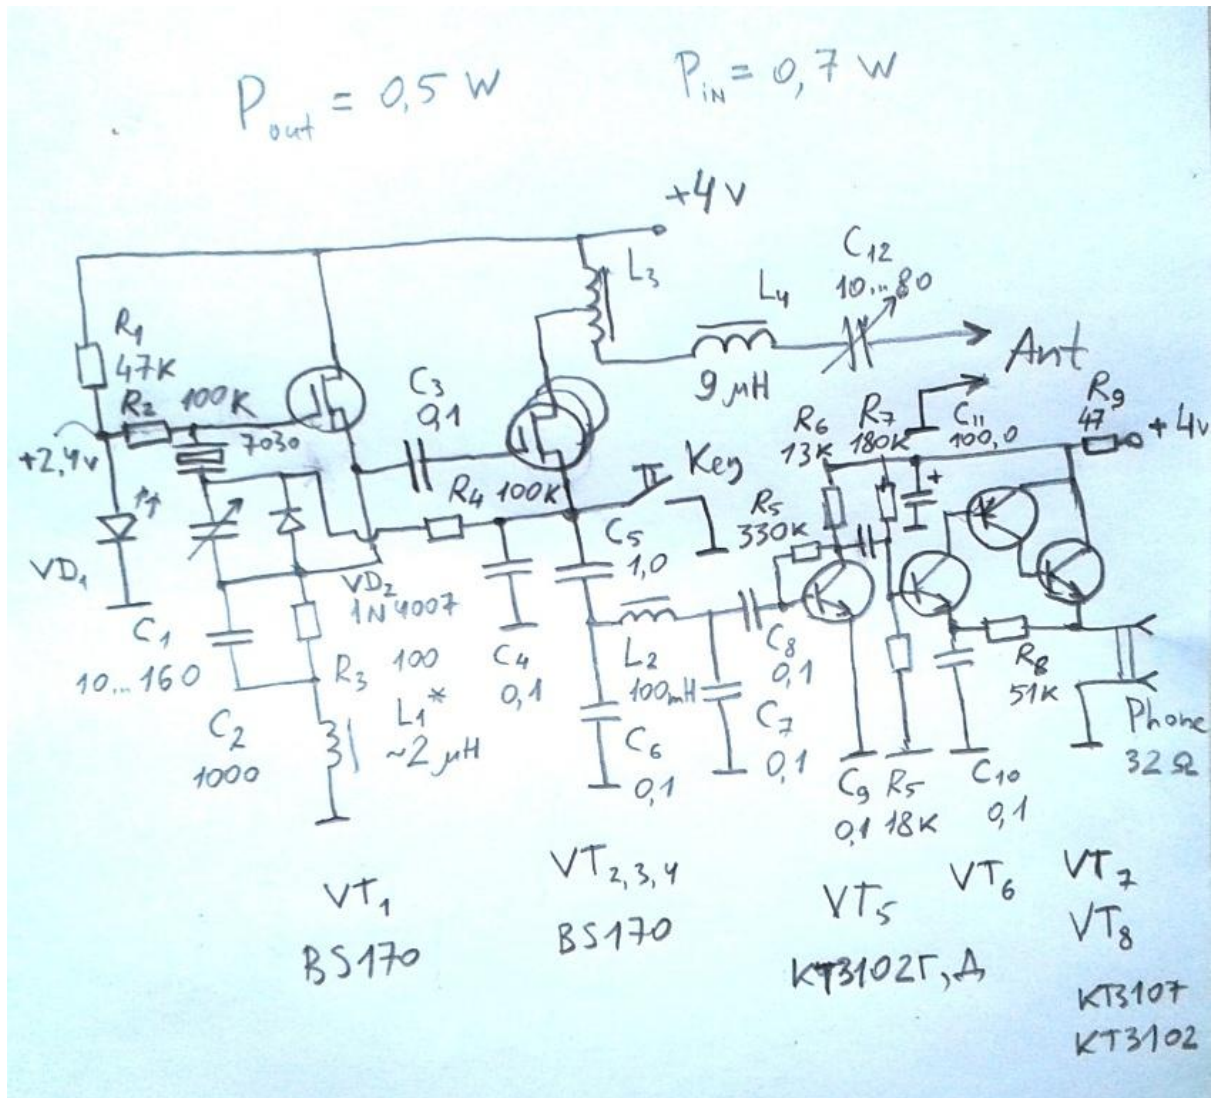 Pout = 0,5 W
PIN = 0,7 W
+4 v
L3
C12
10...80
L4
9 μH
Ant
R1
47K
R2 100K
7030
+2,4v
C3
0,1
R4 100K
Key
R6
13K
R7
180K
C11
100,0
R9
47
+4v
R5
330K
C5
1,0
VD1
VD2
1N4007
C1
10...160
R3 100
C4
0,1
L2
100mH
C8
0,1
R8
51K
Phone
32 Ω
C2
1000
L1*
~2 μH
C6
0,1
C7
0,1
C9
0,1
R5
18K
C10
0,1
VT1
BS170
VT2,3,4
BS170
VT5
KT3102Г,Д
VT6
VT7
VT8
KT3107
KT3102